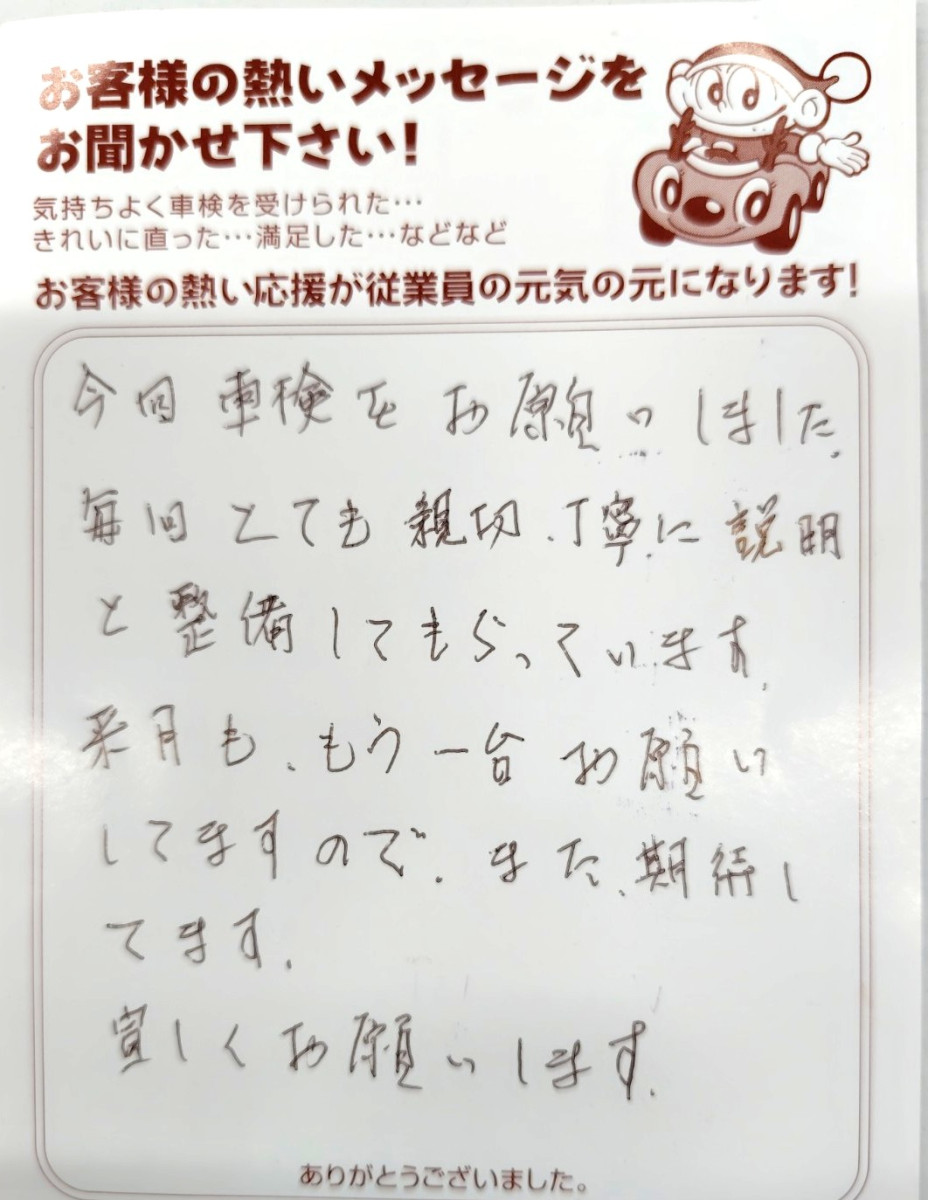 お客様の熱いメッセージを
お聞かせ下さい!
気持ちよく車検を受けられた…
きれいに直った…満足した…などなど
お客様の熱い応援が従業員の元気の元になります!
今回 車検を お願いしました。
毎回 とても 親切、丁寧に 説明
と 整備してもらっています。
来月も、もう一台 お願い
してますので、また、期待し
てます。
宜しくお願いします。
ありがとうございました。